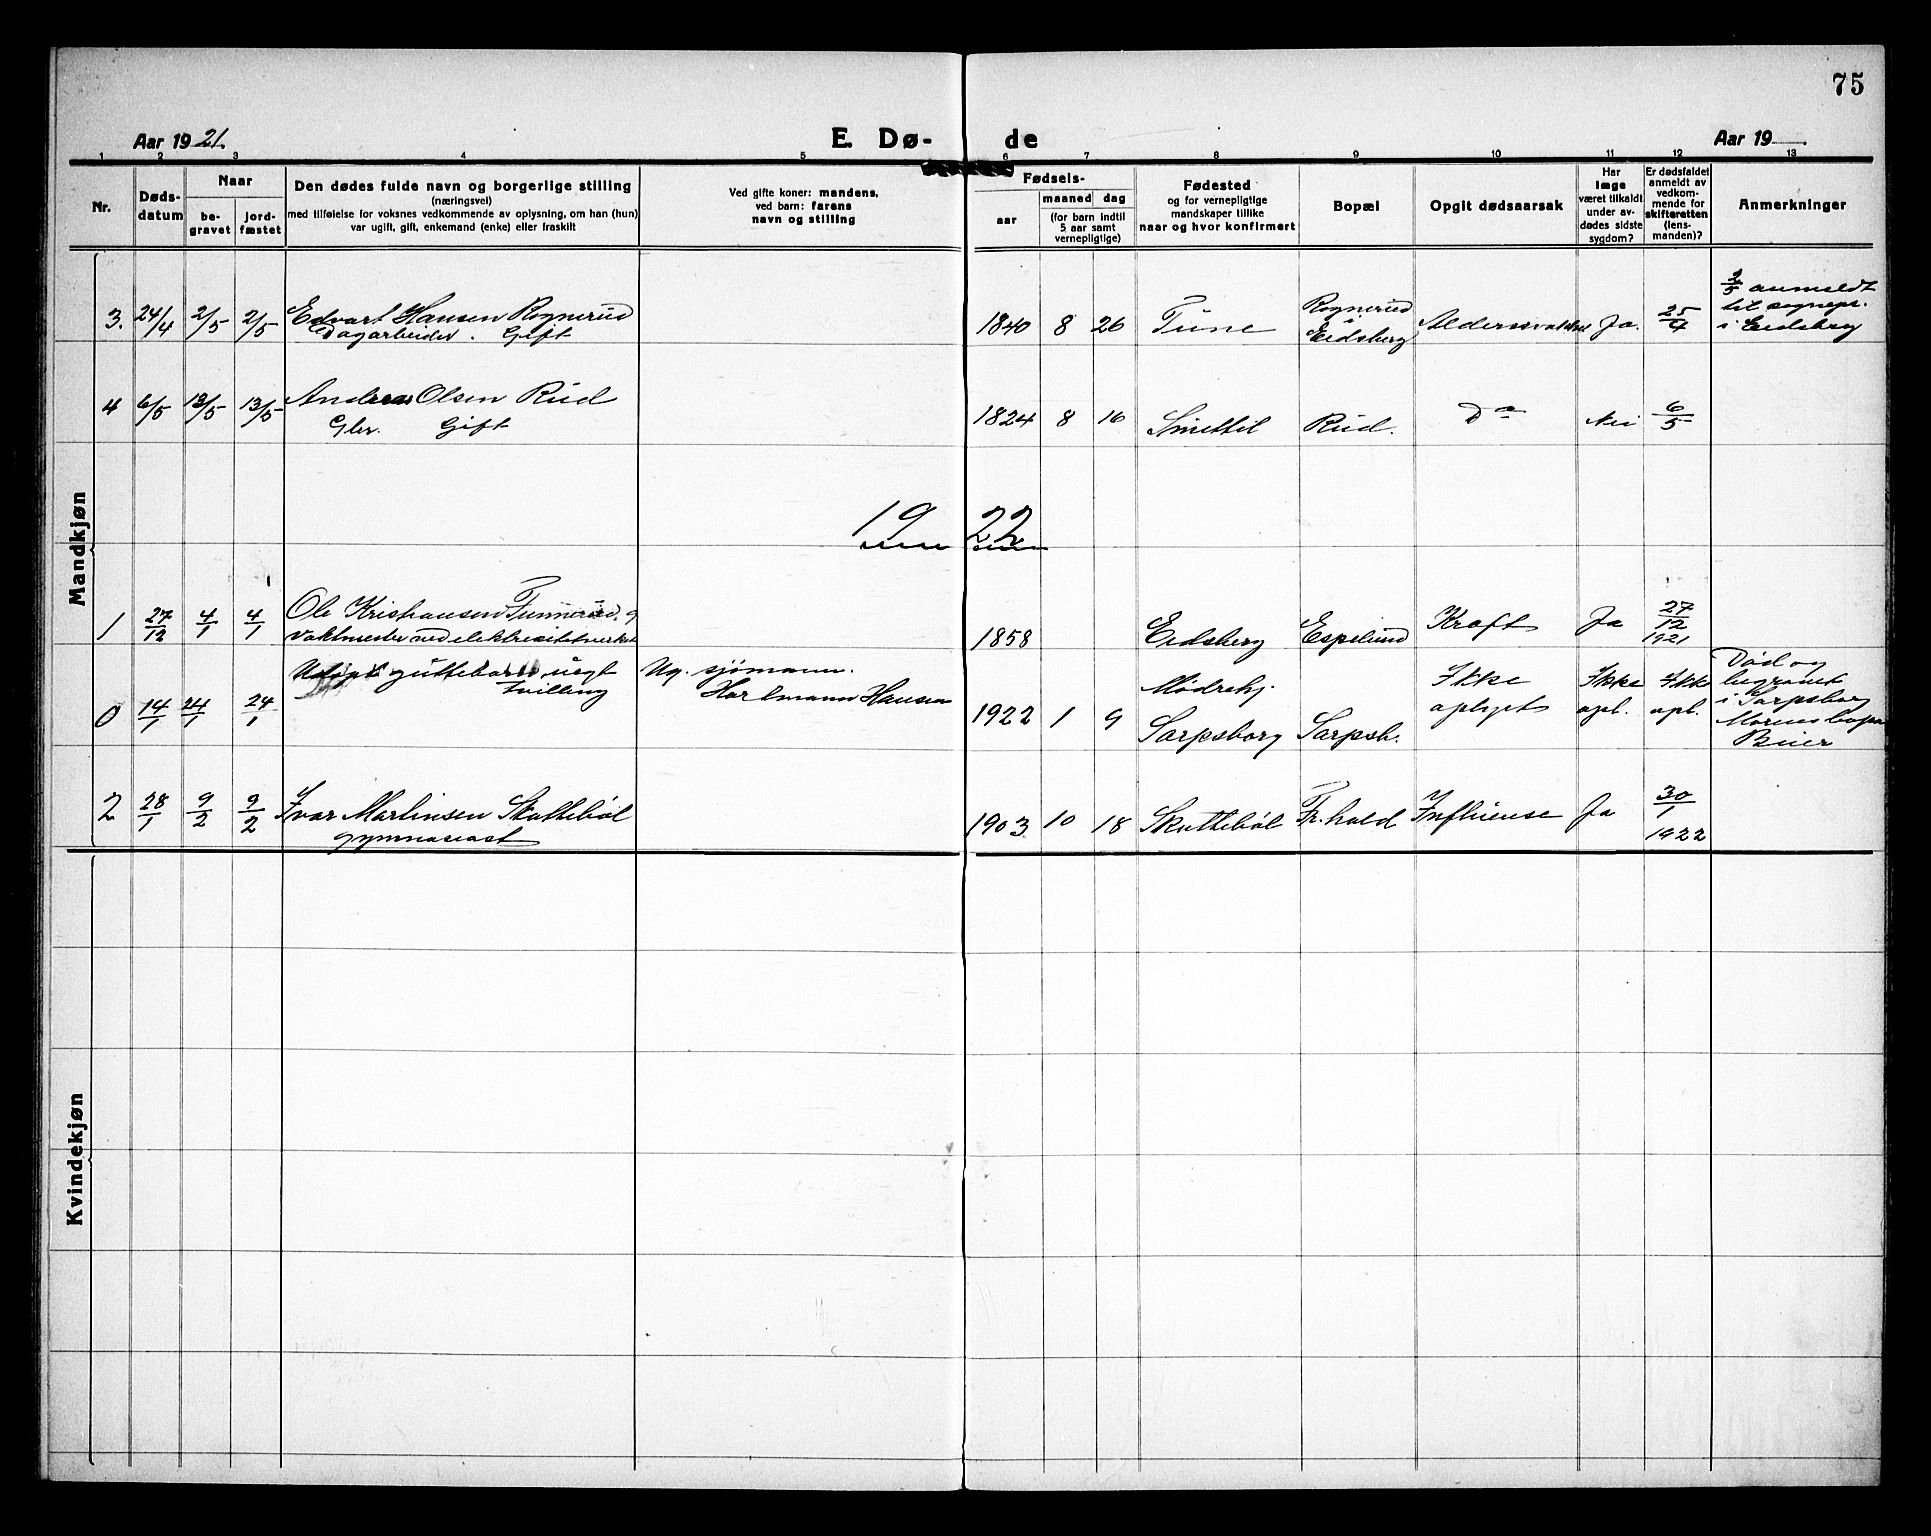 75
Aar 1921.
E. Dø-
de
Aar 19
1 2 3 4 5 6 7 8 9 10 11 12 13
Nr.
Døds-
datum
Naar
be-
gravet
jord-
fæstet
Den dødes fulde navn og borgerlige stilling
(næringsvei)
med tilføielse for voksnes vedkommende av oplysning, om han (hun)
var ugift, gift, enkemand (enke) eller fraskilt
Ved gifte koner: mandens,
ved barn: farens
navn og stilling
Fødsels-
aar
maaned dag
(for barn indtil
5 aar samt
vernepligtige)
Fødested
og for vernepligtige
mandskaper tillike
naar og hvor konfirmert
Bopæl
Opgit dødsaarsak
Har
læge
været tilkaldt
under av-
dødes sidste
sygdom?
Er dødsfaldet
anmeldt av
vedkom-
mende for
skifteretten
(lens-
manden)?
Anmerkninger
Mandkjøn
3. 24/4 2/5 2/5 Edvart Hansen Rognerud
Dagarbeider. Gift
1840 8 26 Tune
Rognerud
i
Eidsberg
Alderssvakhed Ja. 25/4
2/5 anmeldt
til sognepr.
i Eidsberg
4 6/5 13/5 13/5 Andreas Olsen Rud
Gbr. Gift
1824 8 16 Smettil Rud. Do Nei 6/5
1922
1 27/12 4/1 4/1 Ole Kristiansen
Vaktmester ved elektrisitetsverket
1858 Eidsberg Espelund Kræft Ja 27/12
1921
0 14/1 24/1 24/1 Udøpt guttebarn uegt
Tvilling
Ug. sjømann.
Hartmann Hansen
1922 1 9
Mødrehj.
Sarpsborg Sarpsb.
Ikke
oplyst
Ikke
opl.
Ikke
opl.
Død og
begravet
i Sarpsborg
2 28/1 9/2 9/2 Ivar Martinsen Skottebøl
gymnasiast
1903 10 18 Skottebøl Fr.hald Influense Ja 30/1
1922
Kvindekjøn